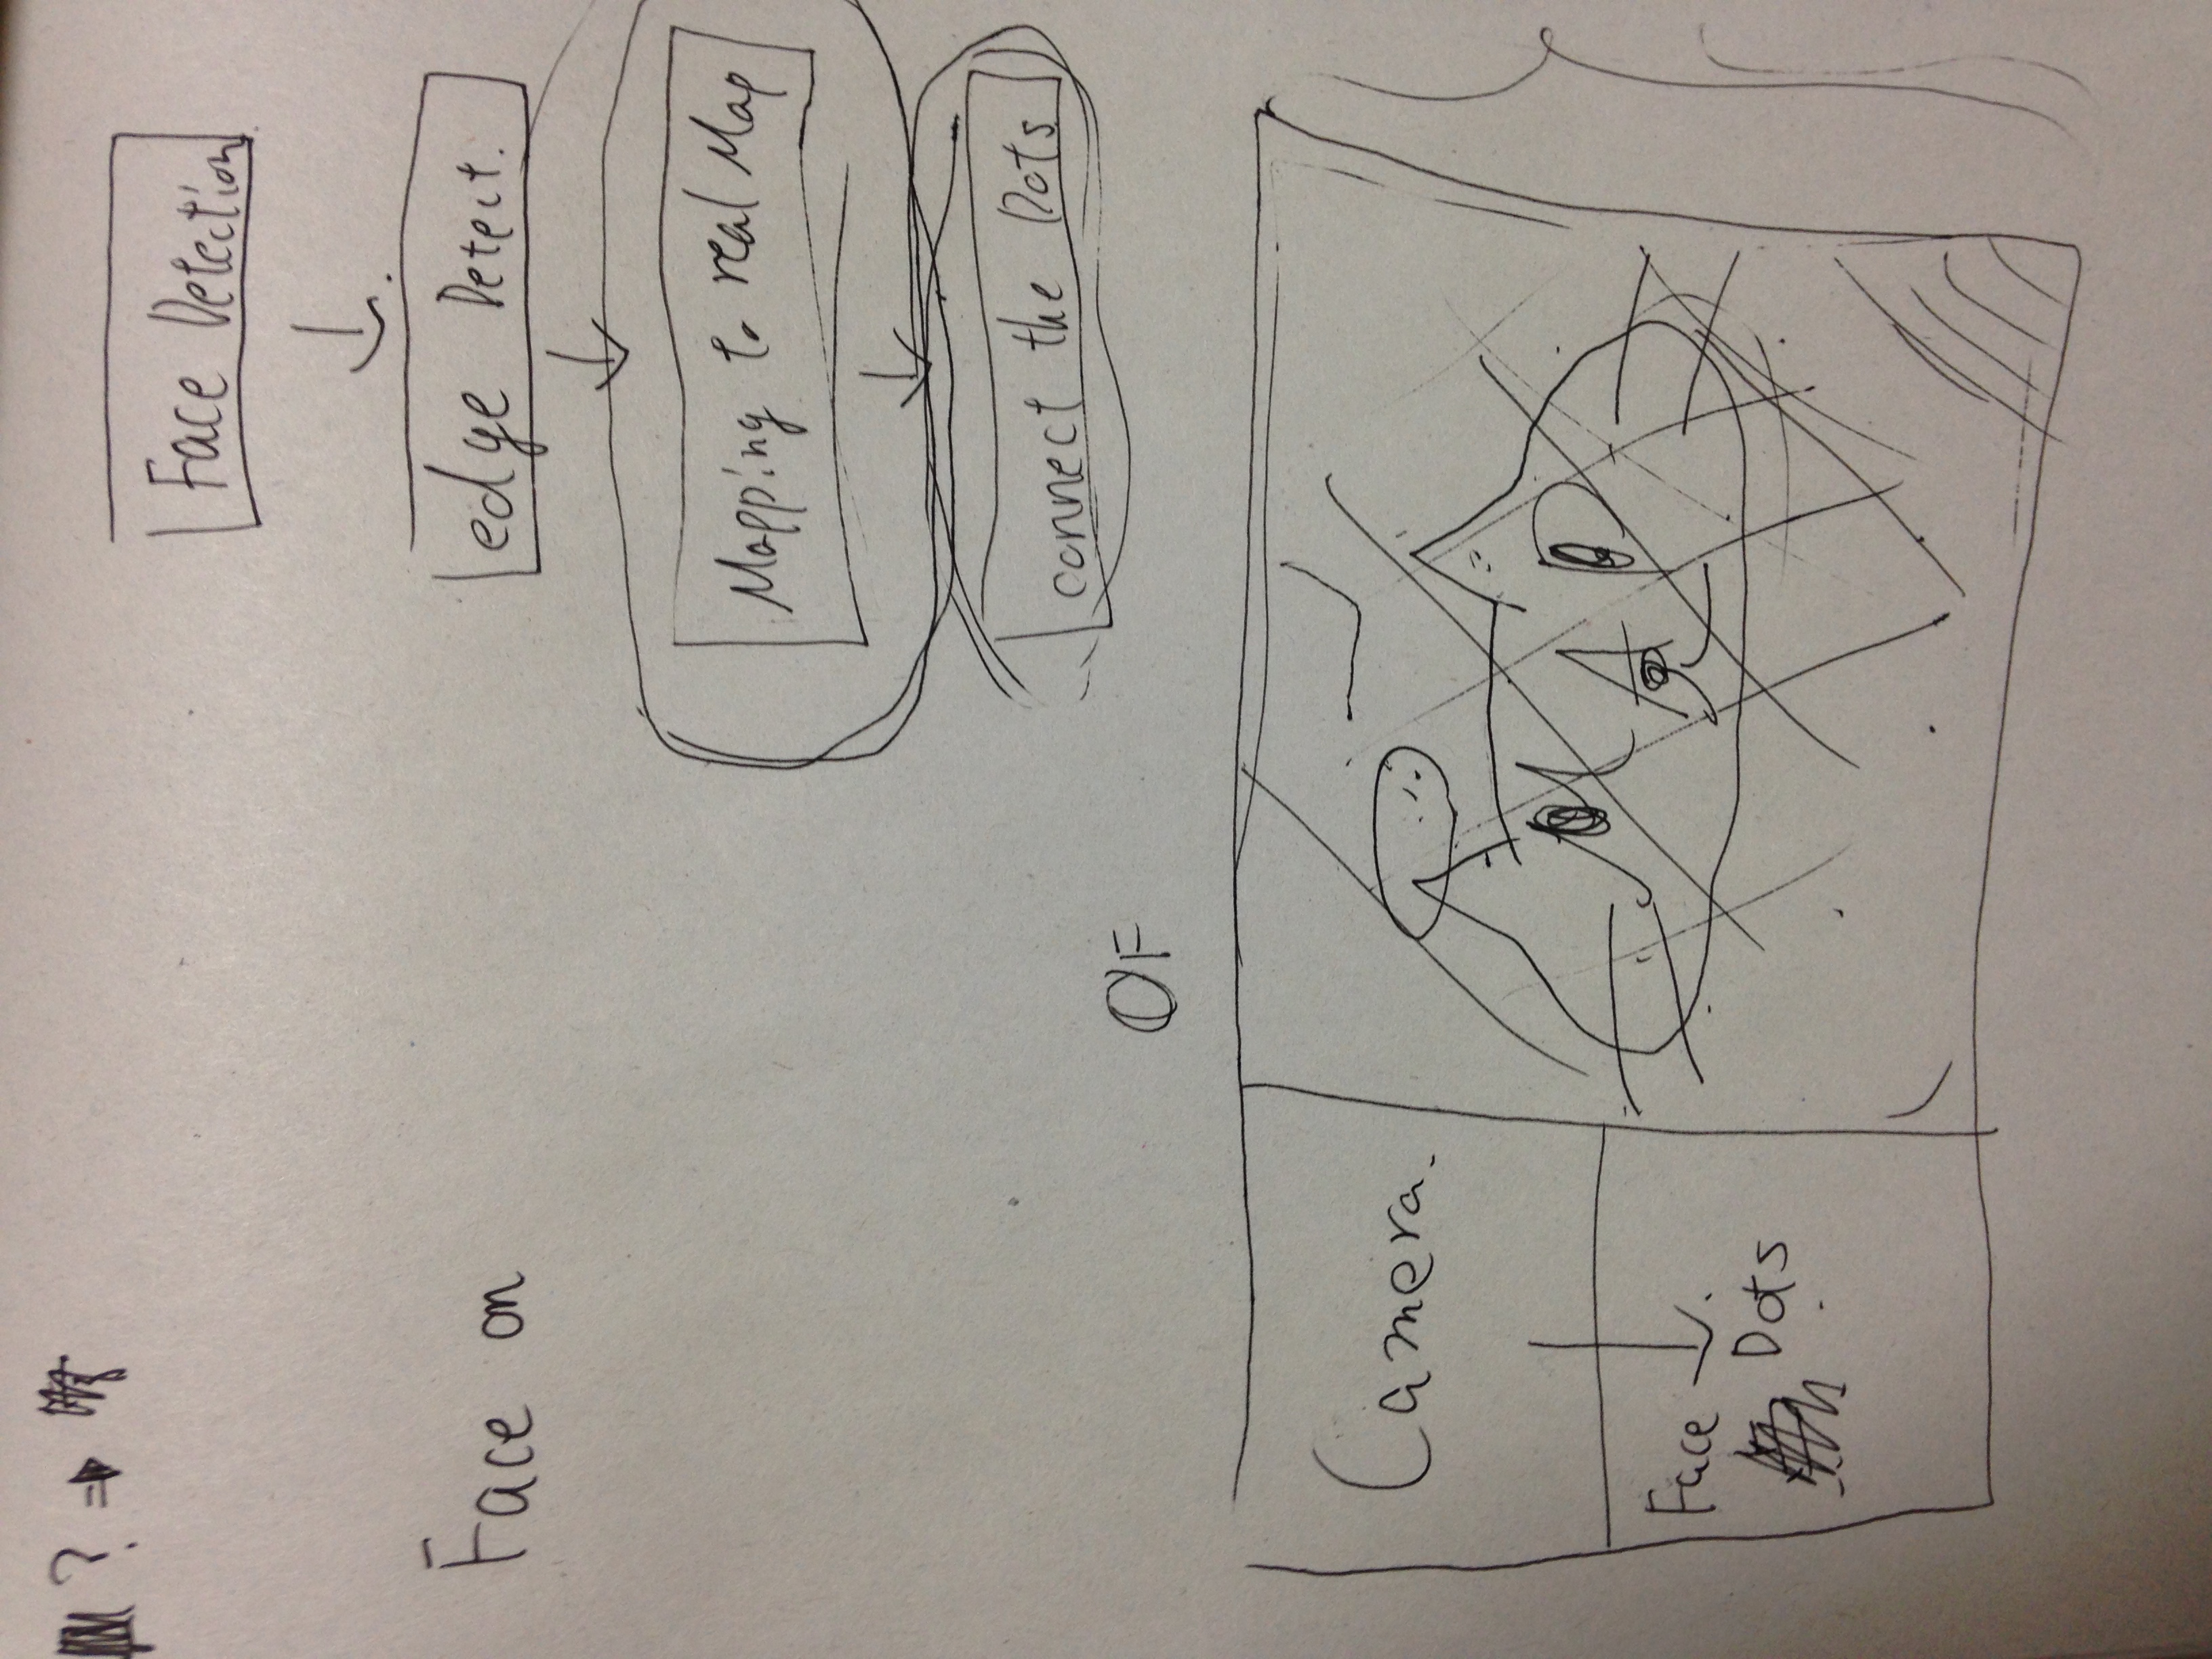 ? ⇒
Face Detection
↓
edge Detect.
↓
Face on
Mapping to real Map
↓
connect the Dots
OF
Camera.
↓
Face
Dots